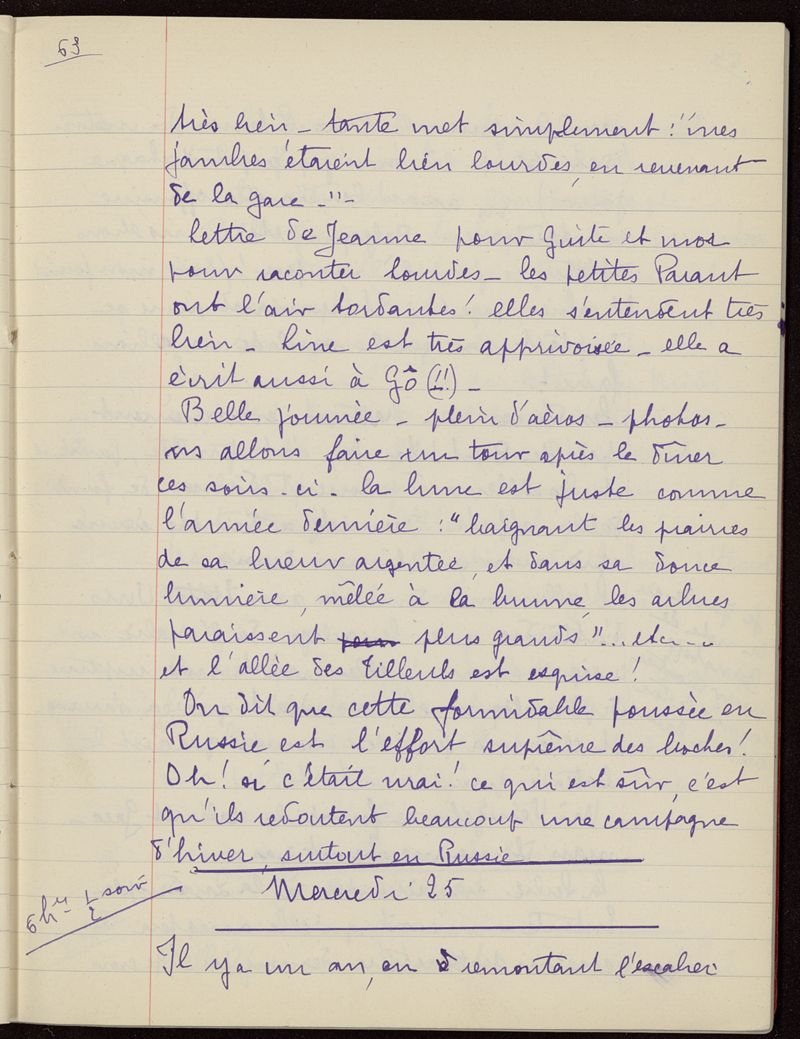 63
très bien - tante met simplement : "mes
jambes étaient bien lourdes, en revenant
de la gare -"-
lettre de Jeanne pour Guite et moi
pour raconter lourdes - les petites Parant
ont l'air tordantes ! elles s'entendent très
bien - line est très apprivoisée - elle a
écrit aussi à Gô (!!) -
Belle journée - plein d'aéros - photos -
ns allons faire un tour après le dîner
ces soirs-ci - la lune est juste comme
l'année dernière : "baignant les prairies
de sa lueur argentée, et dans sa douce
lumière, mêlée à la brume, les arbres
paraissent plus grands"... etc...
et l'allée des tilleuls est exquise !
On dit que cette formidable poussée en
Russie est l'effort suprême des boches !
Oh ! si c'était vrai ! ce qui est sûr, c'est
qu'ils redoutent beaucoup une campagne
d'hiver, surtout en Russie
Mercredi 25
6h 1/2 soir
Il y a un an, en remontant l'escalier